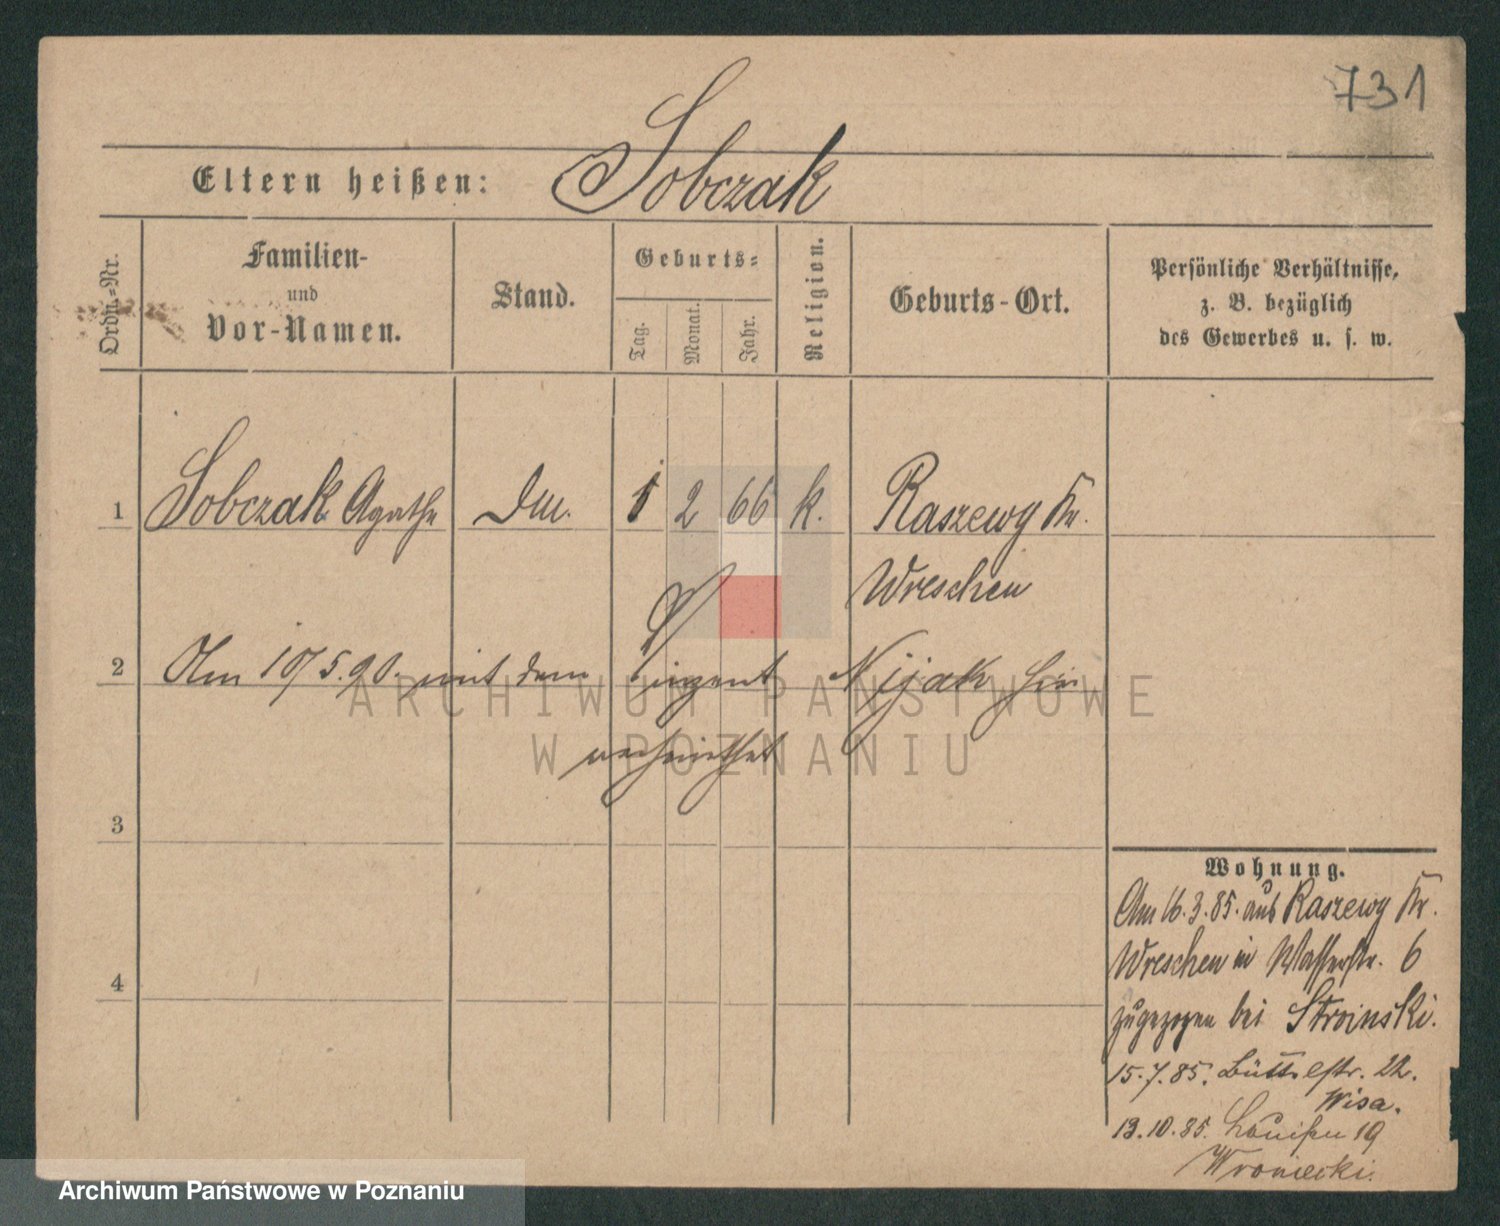 731
Eltern heißen: Sobczak
Ordn.-Nr.
Familien-
und
Vor-Namen.
Stand.
Geburts-
Tag.
Monat.
Jahr.
Religion.
Geburts-Ort.
Persönliche Verhältnisse,
z. B. bezüglich
des Gewerbes u. s. w.
1 Sobczak Agathe 2 66 k. Raszewy Kr.
Wreschen
2 Am 10/5.90. mit dem Vinzent Nijak hier
verheirathet
3
4
Wohnung.
Am 16.3.85. aus Raszewy Kr.
Wreschen in Wasserstr. 6
zugezogen bei Stroinski.
15.7.85. Büttelstr. 22.
Wisa.
13.10.85. 19
Wroniecki.
ARCHIWUM PAŃSTWOWE
W POZNANIU
Archiwum Państwowe w Poznaniu